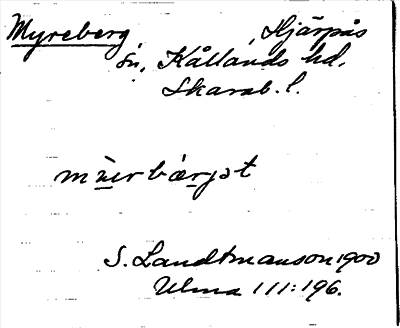 Myreberg, Hjärpås
sn, Kållands hd,
Skarab. l.
S. Landtmanson 1900
Ulma 111:196.